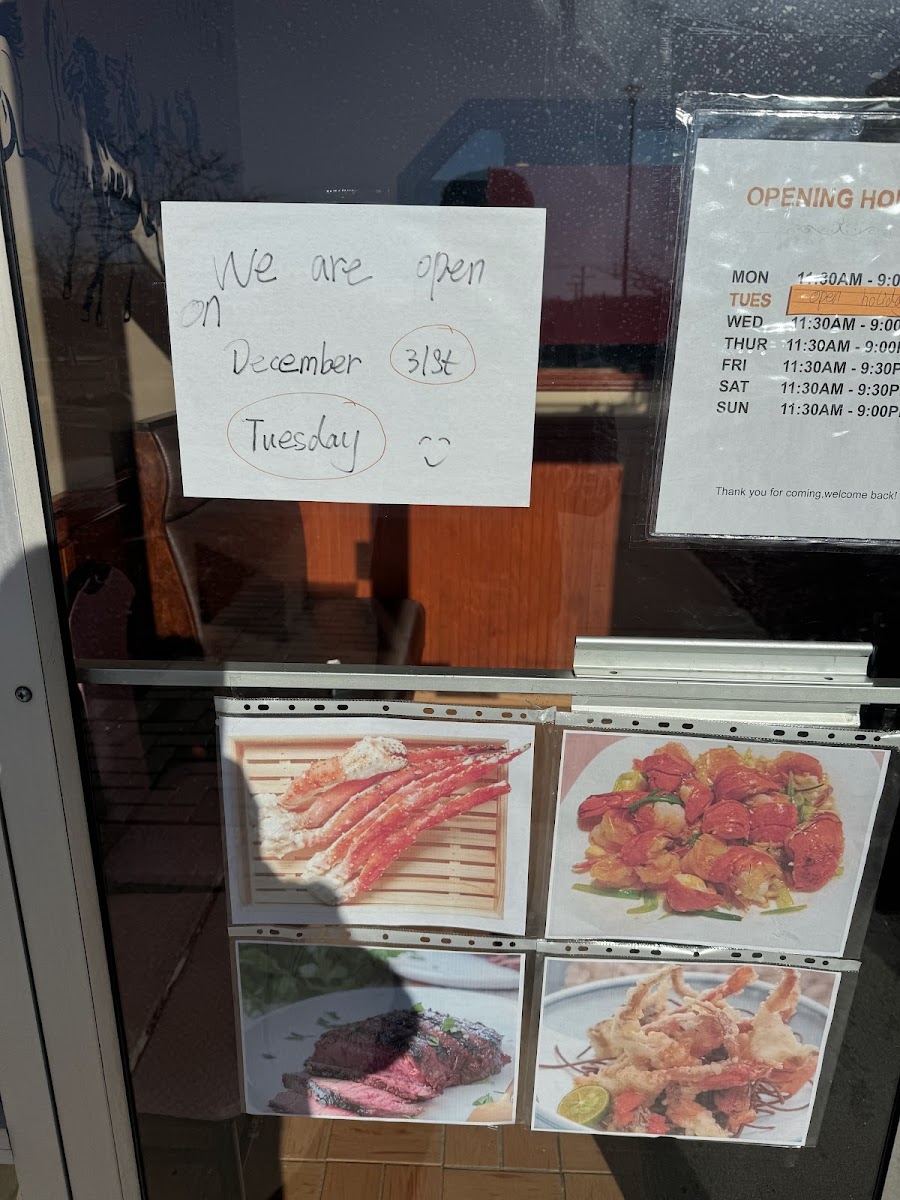 We are open
on
December 31st
Tuesday
OPENING HO
MON 11:30AM - 9:0
TUES open holiday
WED 11:30AM - 9:00
THUR 11:30AM - 9:00
FRI 11:30AM - 9:30P
SAT 11:30AM - 9:30P
SUN 11:30AM - 9:00P
Thank you for coming,welcome back!